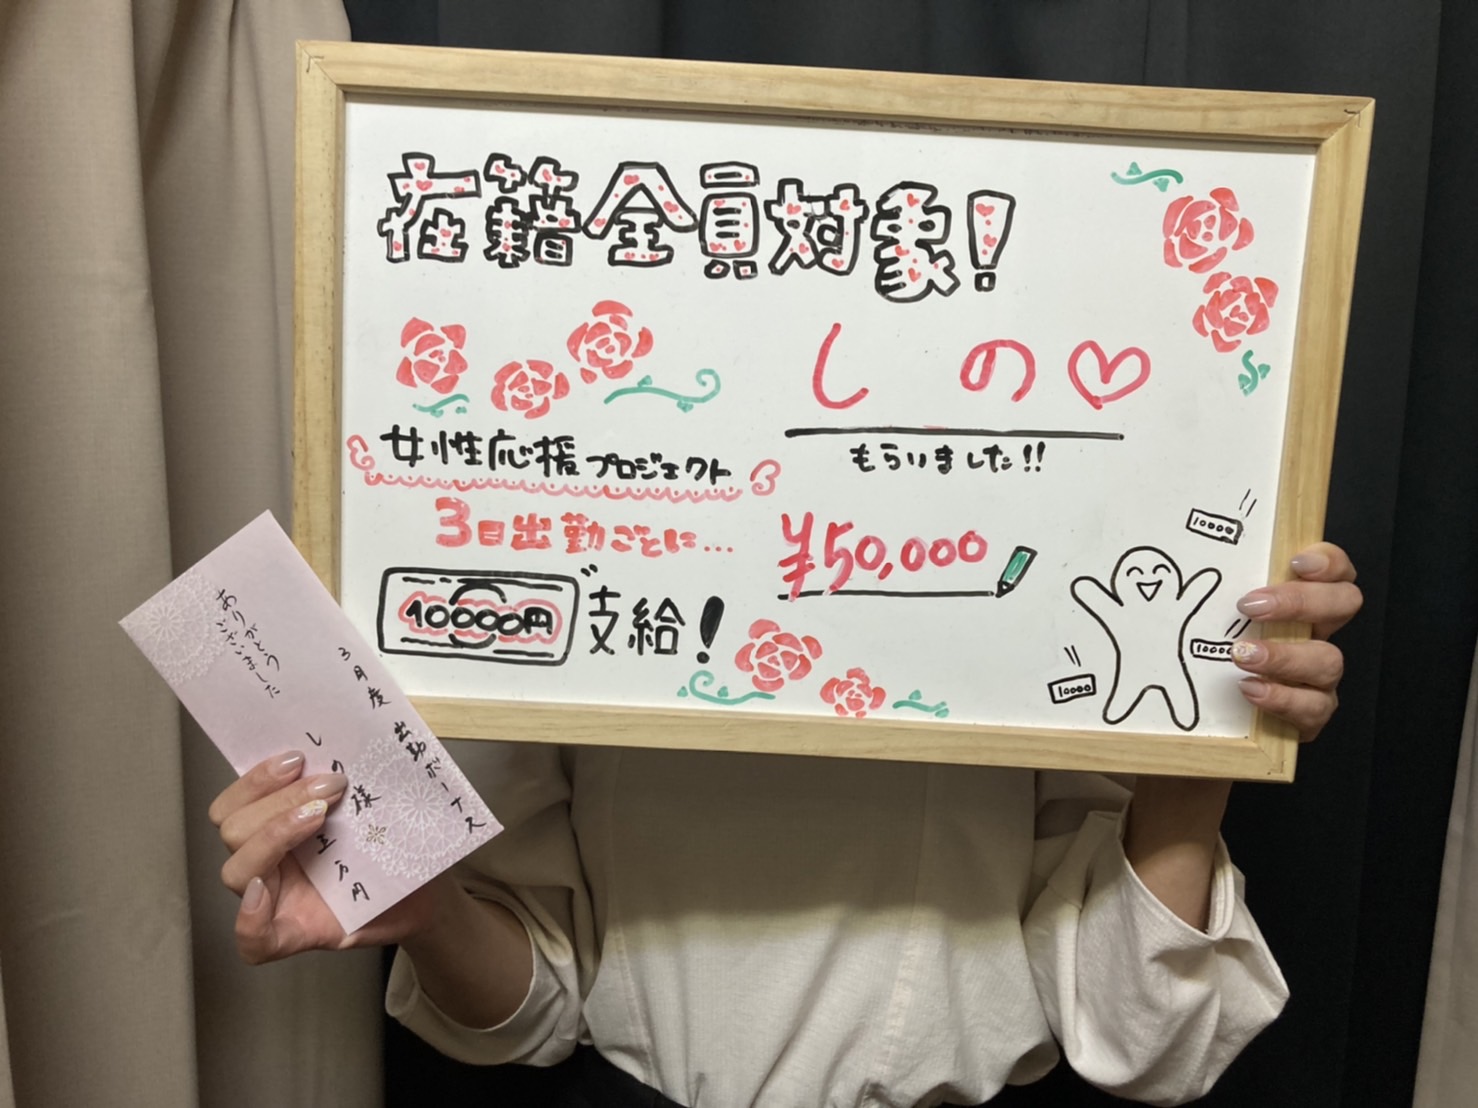 在籍全員対象!
しの♡
もらいました!!
女性応援プロジェクト
3日出勤ごとに...
10000円支給!
¥50,000
10000
10000
10000
3月度 出勤ボーナス
しの様 五万円
ありがとう
ございました